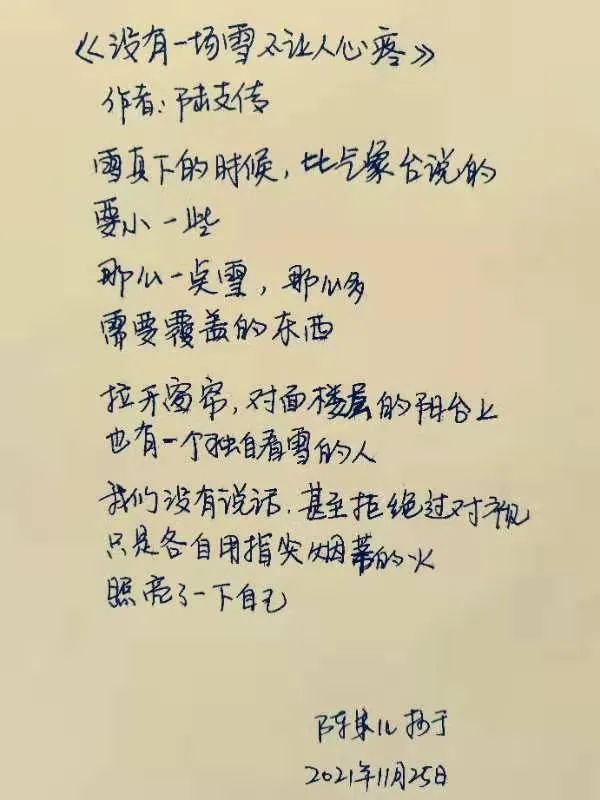 《没有一场雪不让人心疼》
作者：陆支传
雪真下的时候，比气象台说的
要小一些
那么一点雪，那么多
需要覆盖的东西
拉开窗帘，对面楼层的阳台上
也有一个独自看雪的人
我们没有说话，甚至拒绝过对视
只是各自用指尖烟蒂的火
照亮了一下自己
陈果儿抄于
2021年11月25日